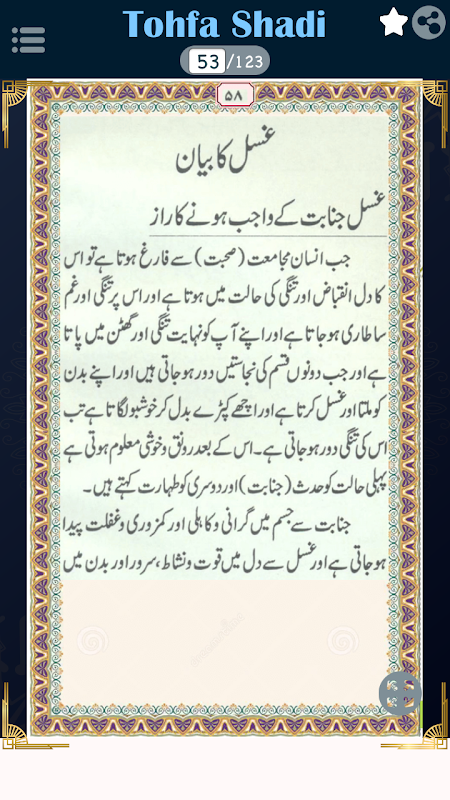 Tohfa Shadi
53/123
۵۸
غسل کا بیان
غسل جنابت کے واجب ہونے کا راز
جب انسان مجامعت (صحبت) سے فارغ ہوتا ہے تو اس
کا دل انقباض اور تنگی کی حالت میں ہوتا ہے اور اس پر تنگی اور غم
سا طاری ہو جاتا ہے اور اپنے آپ کو نہایت تنگی اور گھٹن میں پاتا
ہے اور جب دونوں قسم کی نجاستیں دور ہو جاتی ہیں اور اپنے بدن
کو ملتا اور غسل کرتا ہے اور اچھے کپڑے بدل کر خوشبو لگاتا ہے تب
اس کی تنگی دور ہو جاتی ہے۔ اس کے بعد رونق و خوشی معلوم ہوتی ہے
پہلی حالت کو حدث (جنابت) اور دوسری کو طہارت کہتے ہیں۔
جنابت سے جسم میں گرانی و کاہلی اور کمزوری و غفلت پیدا
ہو جاتی ہے اور غسل سے دل میں قوت و نشاط، سرور اور بدن میں